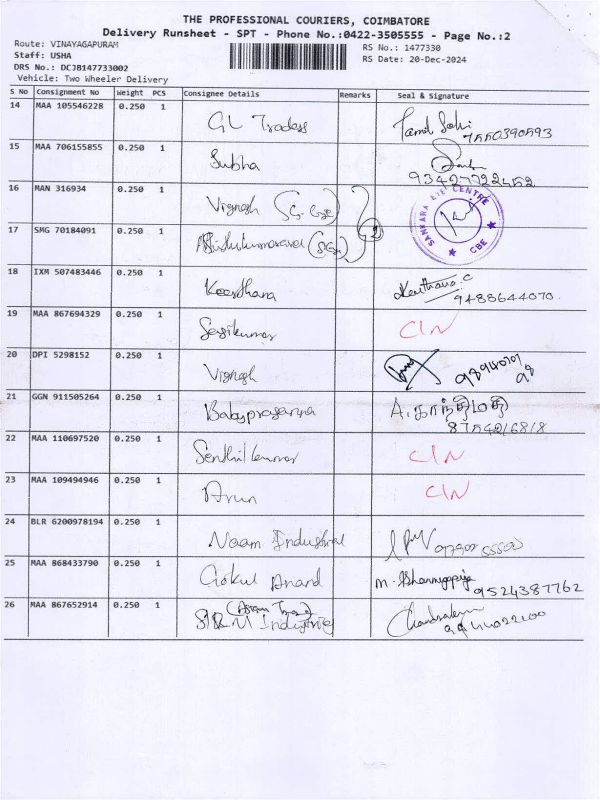 THE PROFESSIONAL COURIERS, COIMBATORE
Delivery Runsheet - SPT - Phone No.:0422-3505555 - Page No.:2
Route: VINAYAGAPURAM
RS No.: 1477330
Staff: USHA
RS Date: 20-Dec-2024
DRS No.: DCJB147733002
Vehicle: Two Wheeler Delivery
S No Consignment No Weight PCS Consignee Details Remarks Seal & Signature
14 MAA 105546228 0.250 1 GL Traders
7550390593
15 MAA 706155855 0.250 1 Subha
93427722452
16 MAN 316934 0.250 1 Vignesh
SANKARA EYE CENTRE CBE
17 SMG 70184091 0.250 1
18 IXM 507483446 0.250 1 Keerthana Keerthana.C
9488644070
19 MAA 867694329 0.250 1 Sasikumar CIN
20 DPI 5298152 0.250 1 Vignesh
21 GGN 911505264 0.250 1 Babyprasanna A.காந்திமதி
8754216818
22 MAA 110697520 0.250 1 Senthilkumar CIN
23 MAA 109494946 0.250 1 Arun CIN
24 BLR 6200978194 0.250 1 Naam Industrial
25 MAA 868433790 0.250 1 Gokul Anand
9524387762
26 MAA 867652914 0.250 1 SRM Industries